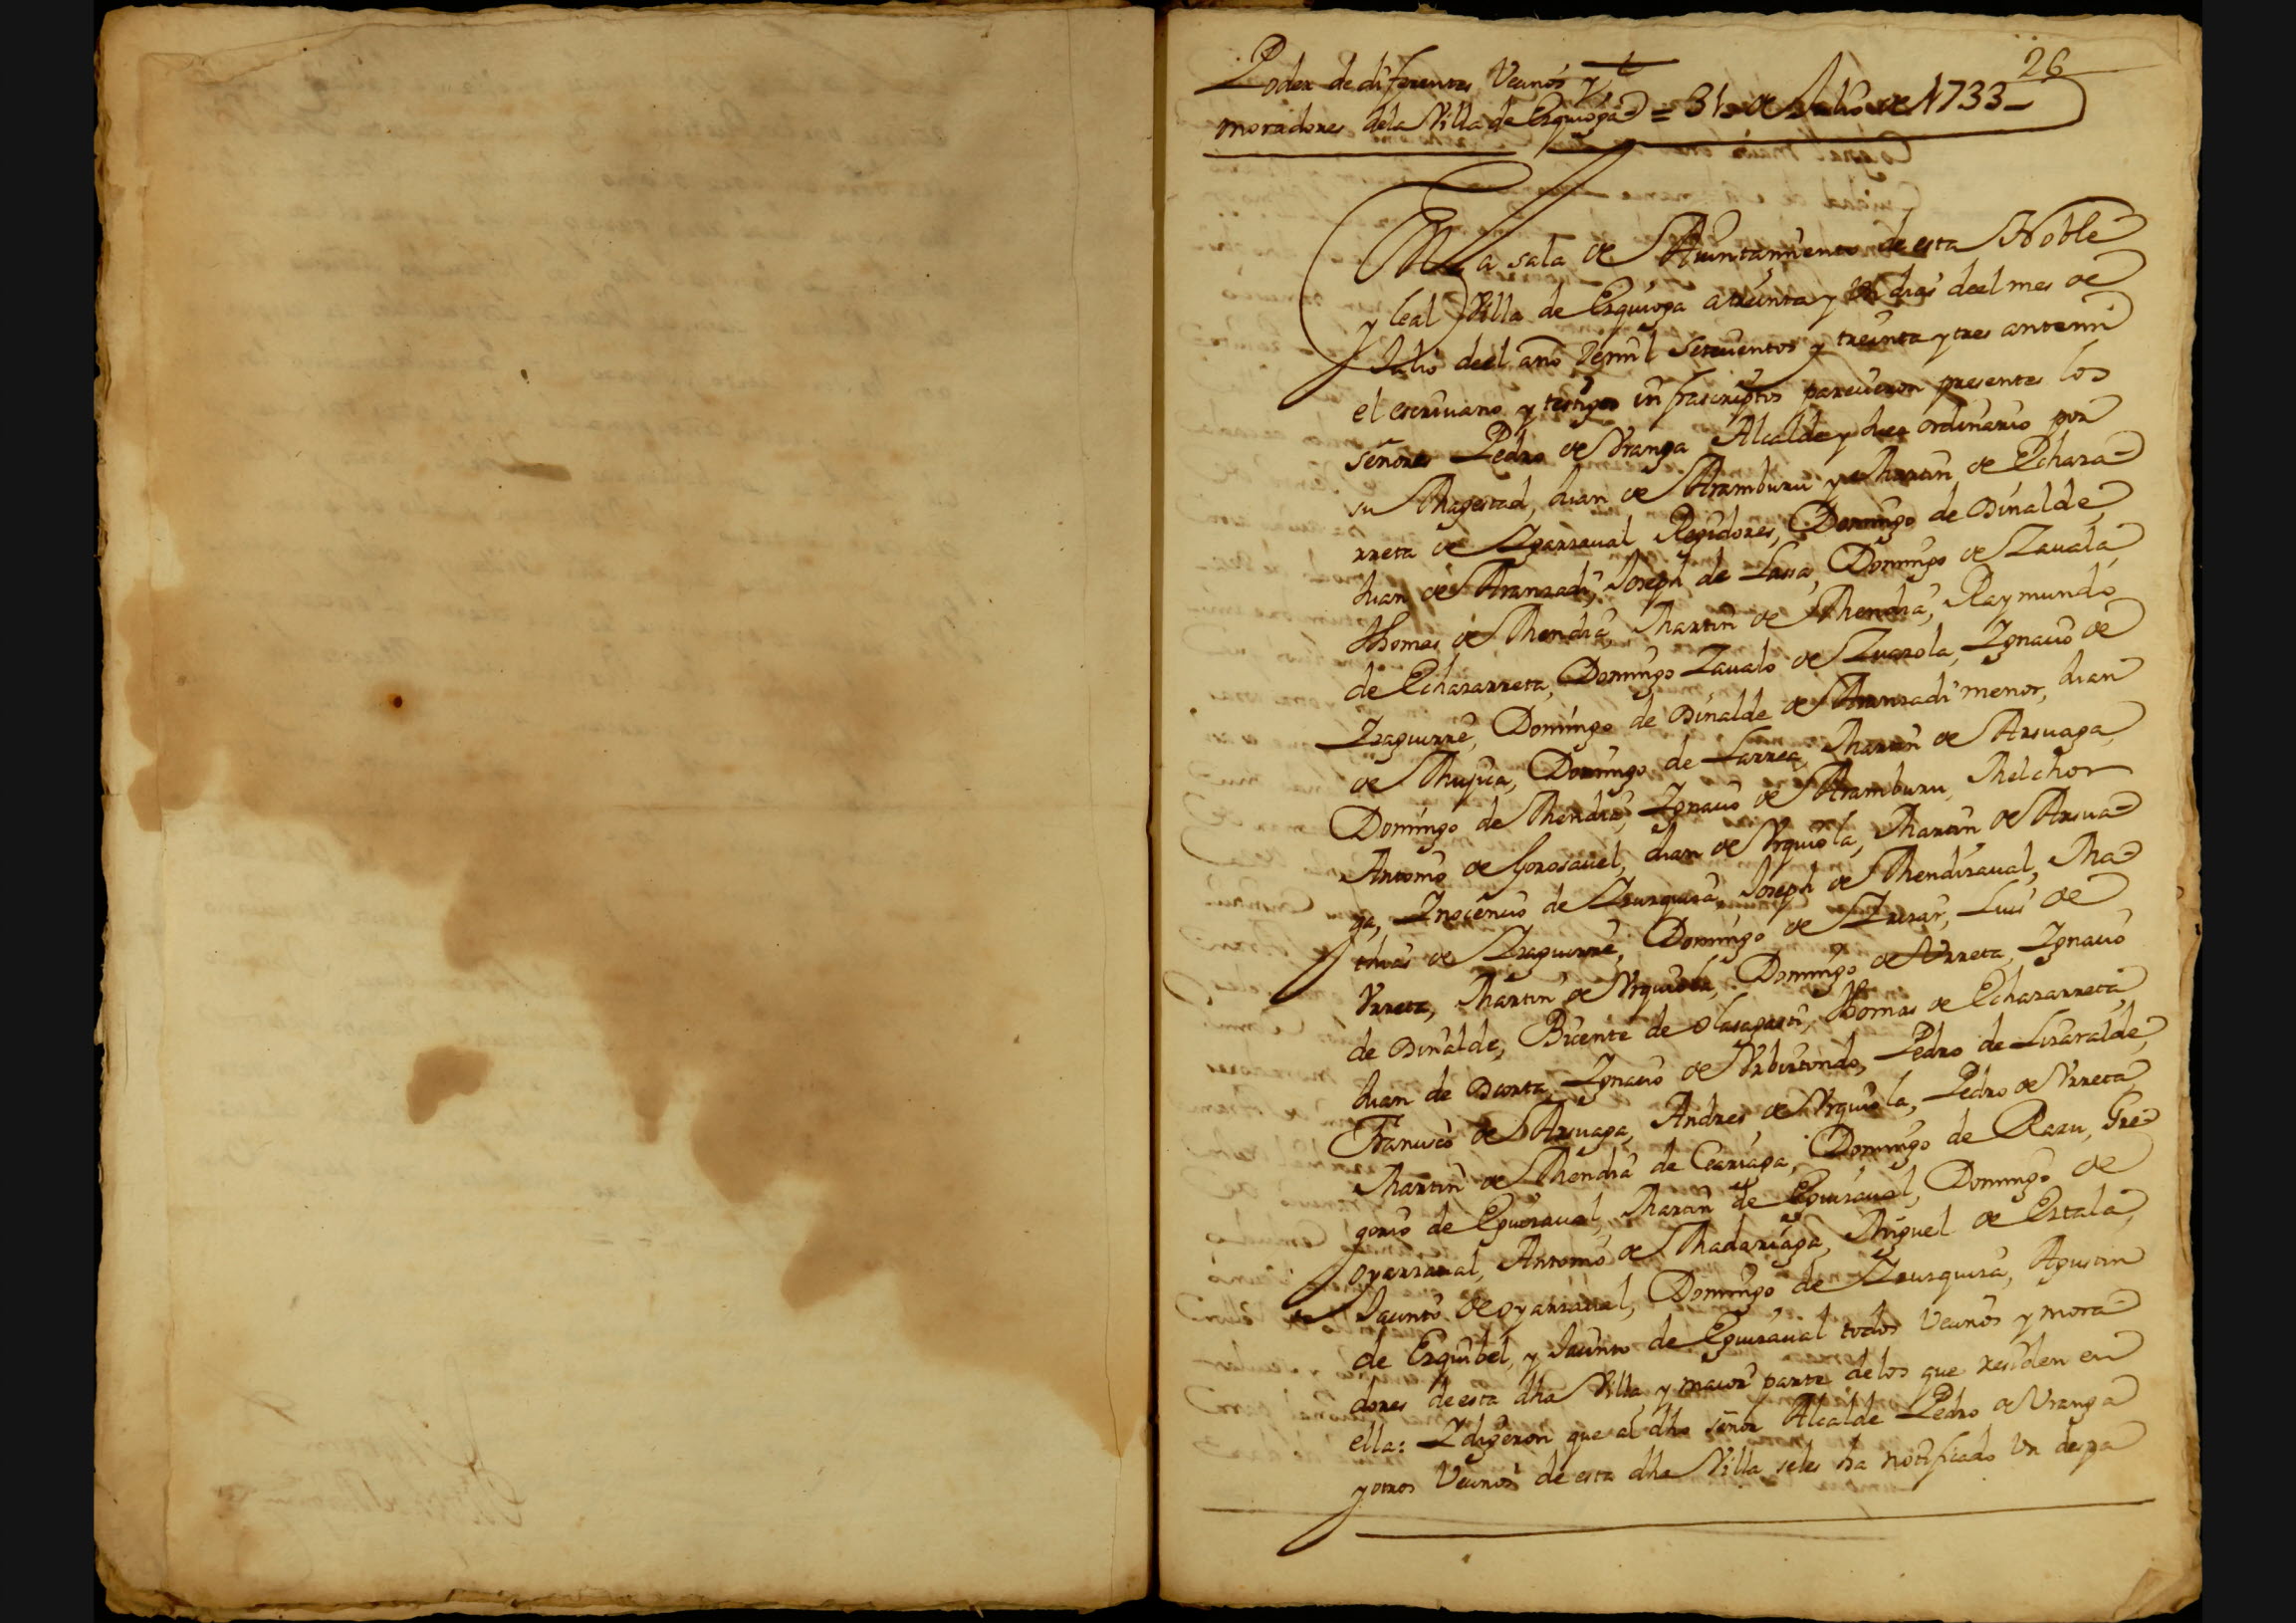 26
Poder de diferentes Vecinos y
moradores dela Villa de Ezquioga = 31 de Julio de 1733
En la sala de Aiuntamiento de esta Noble
y Leal Villa de Ezquioga a treinta y Un dias deel mes de
Julio deel año de mil Setecientos y treinta y tres ante mi
el escriuano y testigos infrascriptos parecieron presentes los
señores Pedro de Vranga Alcalde y Juez ordinario por
su Magestad, Juan de Aramburu y Martin de Echaza
rreta de Yzarraual Regidores, Domingo de Oinalde,
Juan de Aranzadi, Joseph de Lasa, Domingo de Zauala,
Thomas de Mendia, Martin de Mendia, Raymundo
de Echazarreta, Domingo Zaualo de Zuazola, Ygnacio de
Yzaguirre, Domingo de Oinalde de Aranzadi menor, Juan
de Mujica, Domingo de Larrea, Martin de Arsuaga,
Domingo de Mendia, Ygnacio de Aramburu, Melchor
Antonio de Gorosauel, Juan de Vrquiola, Martin de Arsua
ga, Ynocencio de Yzurquiza, Joseph de Mendizaual, Ma
thias de Yzaguirre, Domingo de Yzuzar, Luis de
Vrreta, Martin de Vrquiola, Domingo de Vrreta, Ygnacio
de Oinalde, Bicente de Olasagasti, Thomas de Echazarreta,
Juan de Dorta, Ygnacio de Vrbiztondo, Pedro de Lizaralde,
Francisco de Arsuaga, Andres de Vrquiola, Pedro de Vrreta,
Martin de Mendia de Ceariaga, Domingo de Razu, Gre
gorio de Eguizaual, Martin de Eguizaual, Domingo de
Oyarzaual, Antonio de Madariaga, Miguel de Eztala,
Jacinto de Oyarzaual, Domingo de Yzurquiza, Agustin
de Ezquibel, y Jacinto de Eguizaual todos Vecinos y mora
dores de esta dha Villa, y maior parte delos que residen en
ella: Y digeron que al dho señor Alcalde Pedro de Vranga
y otros Vecinos de esta dha Villa seles ha notificado Un despa